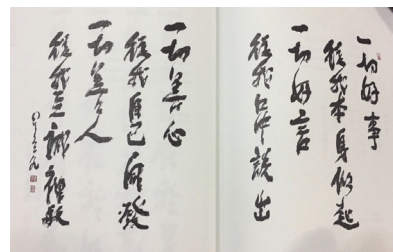 一切好事
從我本身做起
一切好言
從我口中說出
一切善心
從我自己開發
一切善人
從我至誠禮敬